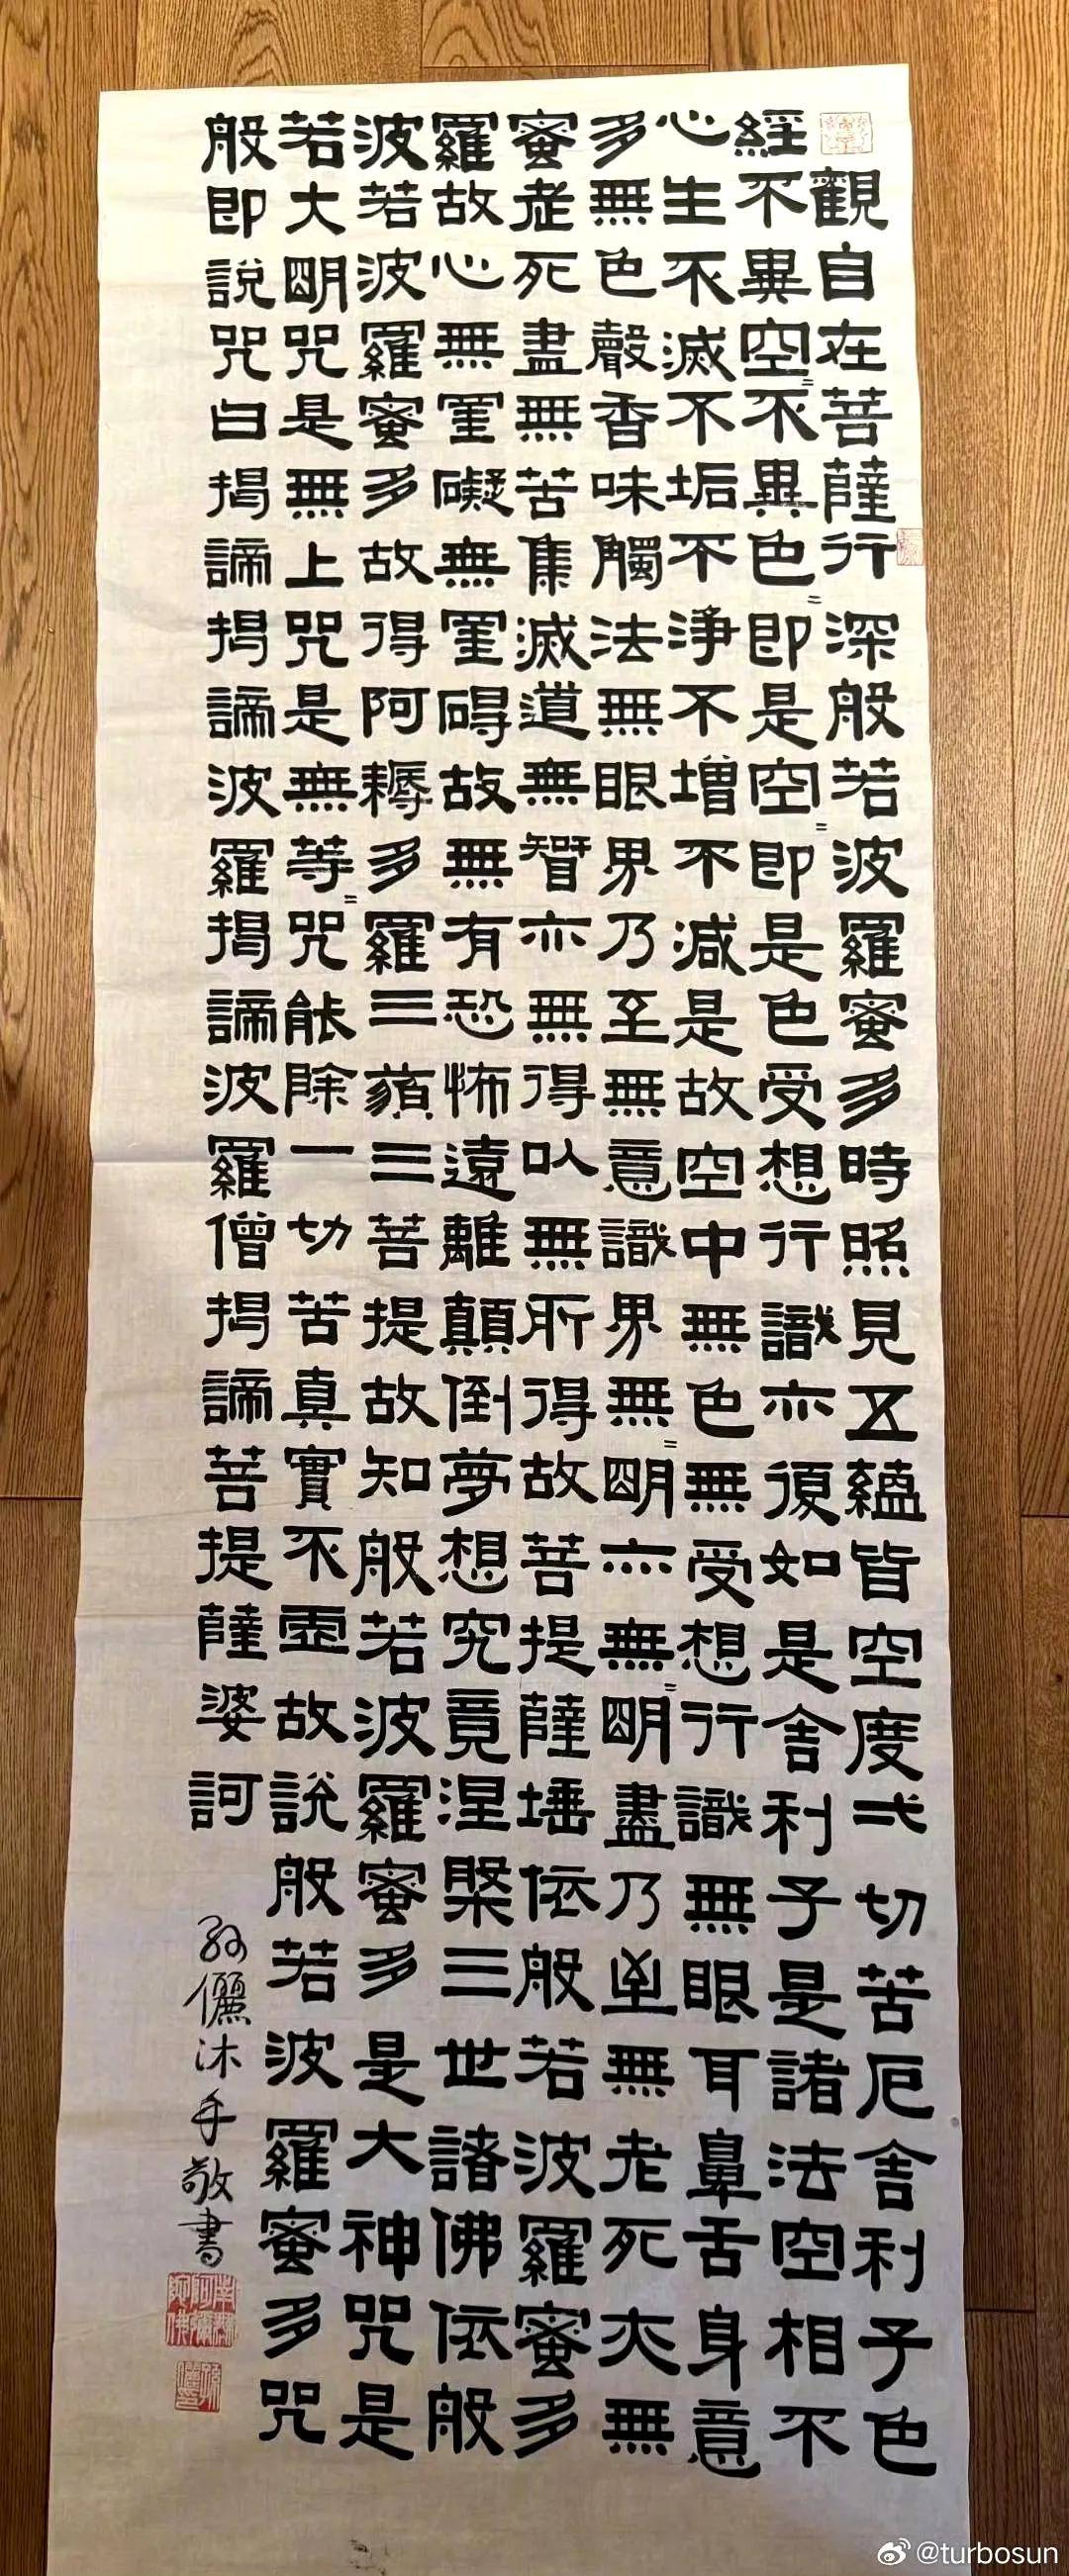 般若波羅蜜多心經
觀自在菩薩行深般若波羅蜜多時照見五蘊皆空度弌切苦厄舍利子色
不異空〻不異色〻即是空〻即是色受想行識亦復如是舍利子是諸法空相不
生不滅不垢不淨不增不減是故空中無色無受想行識無眼耳鼻舌身意
無色聲香味觸法無眼界乃至無意識界無〻明亦無〻明盡乃至無老死亦無
老死盡無苦集滅道無智亦無得以無所得故菩提薩埵依般若波羅蜜多
故心無罣礙無罣碍故無有恐怖遠離顛倒夢想究竟涅槃三世諸佛依般
若波羅蜜多故得阿耨多羅三藐三菩提故知般若波羅蜜多是大神咒是
大明咒是無上咒是無等〻咒能除一切苦真實不虛故說般若波羅蜜多咒
即說咒曰揭諦揭諦波羅揭諦波羅僧揭諦菩提薩婆訶
孫儷沐手敬書
南無阿彌陀佛
@turbosun